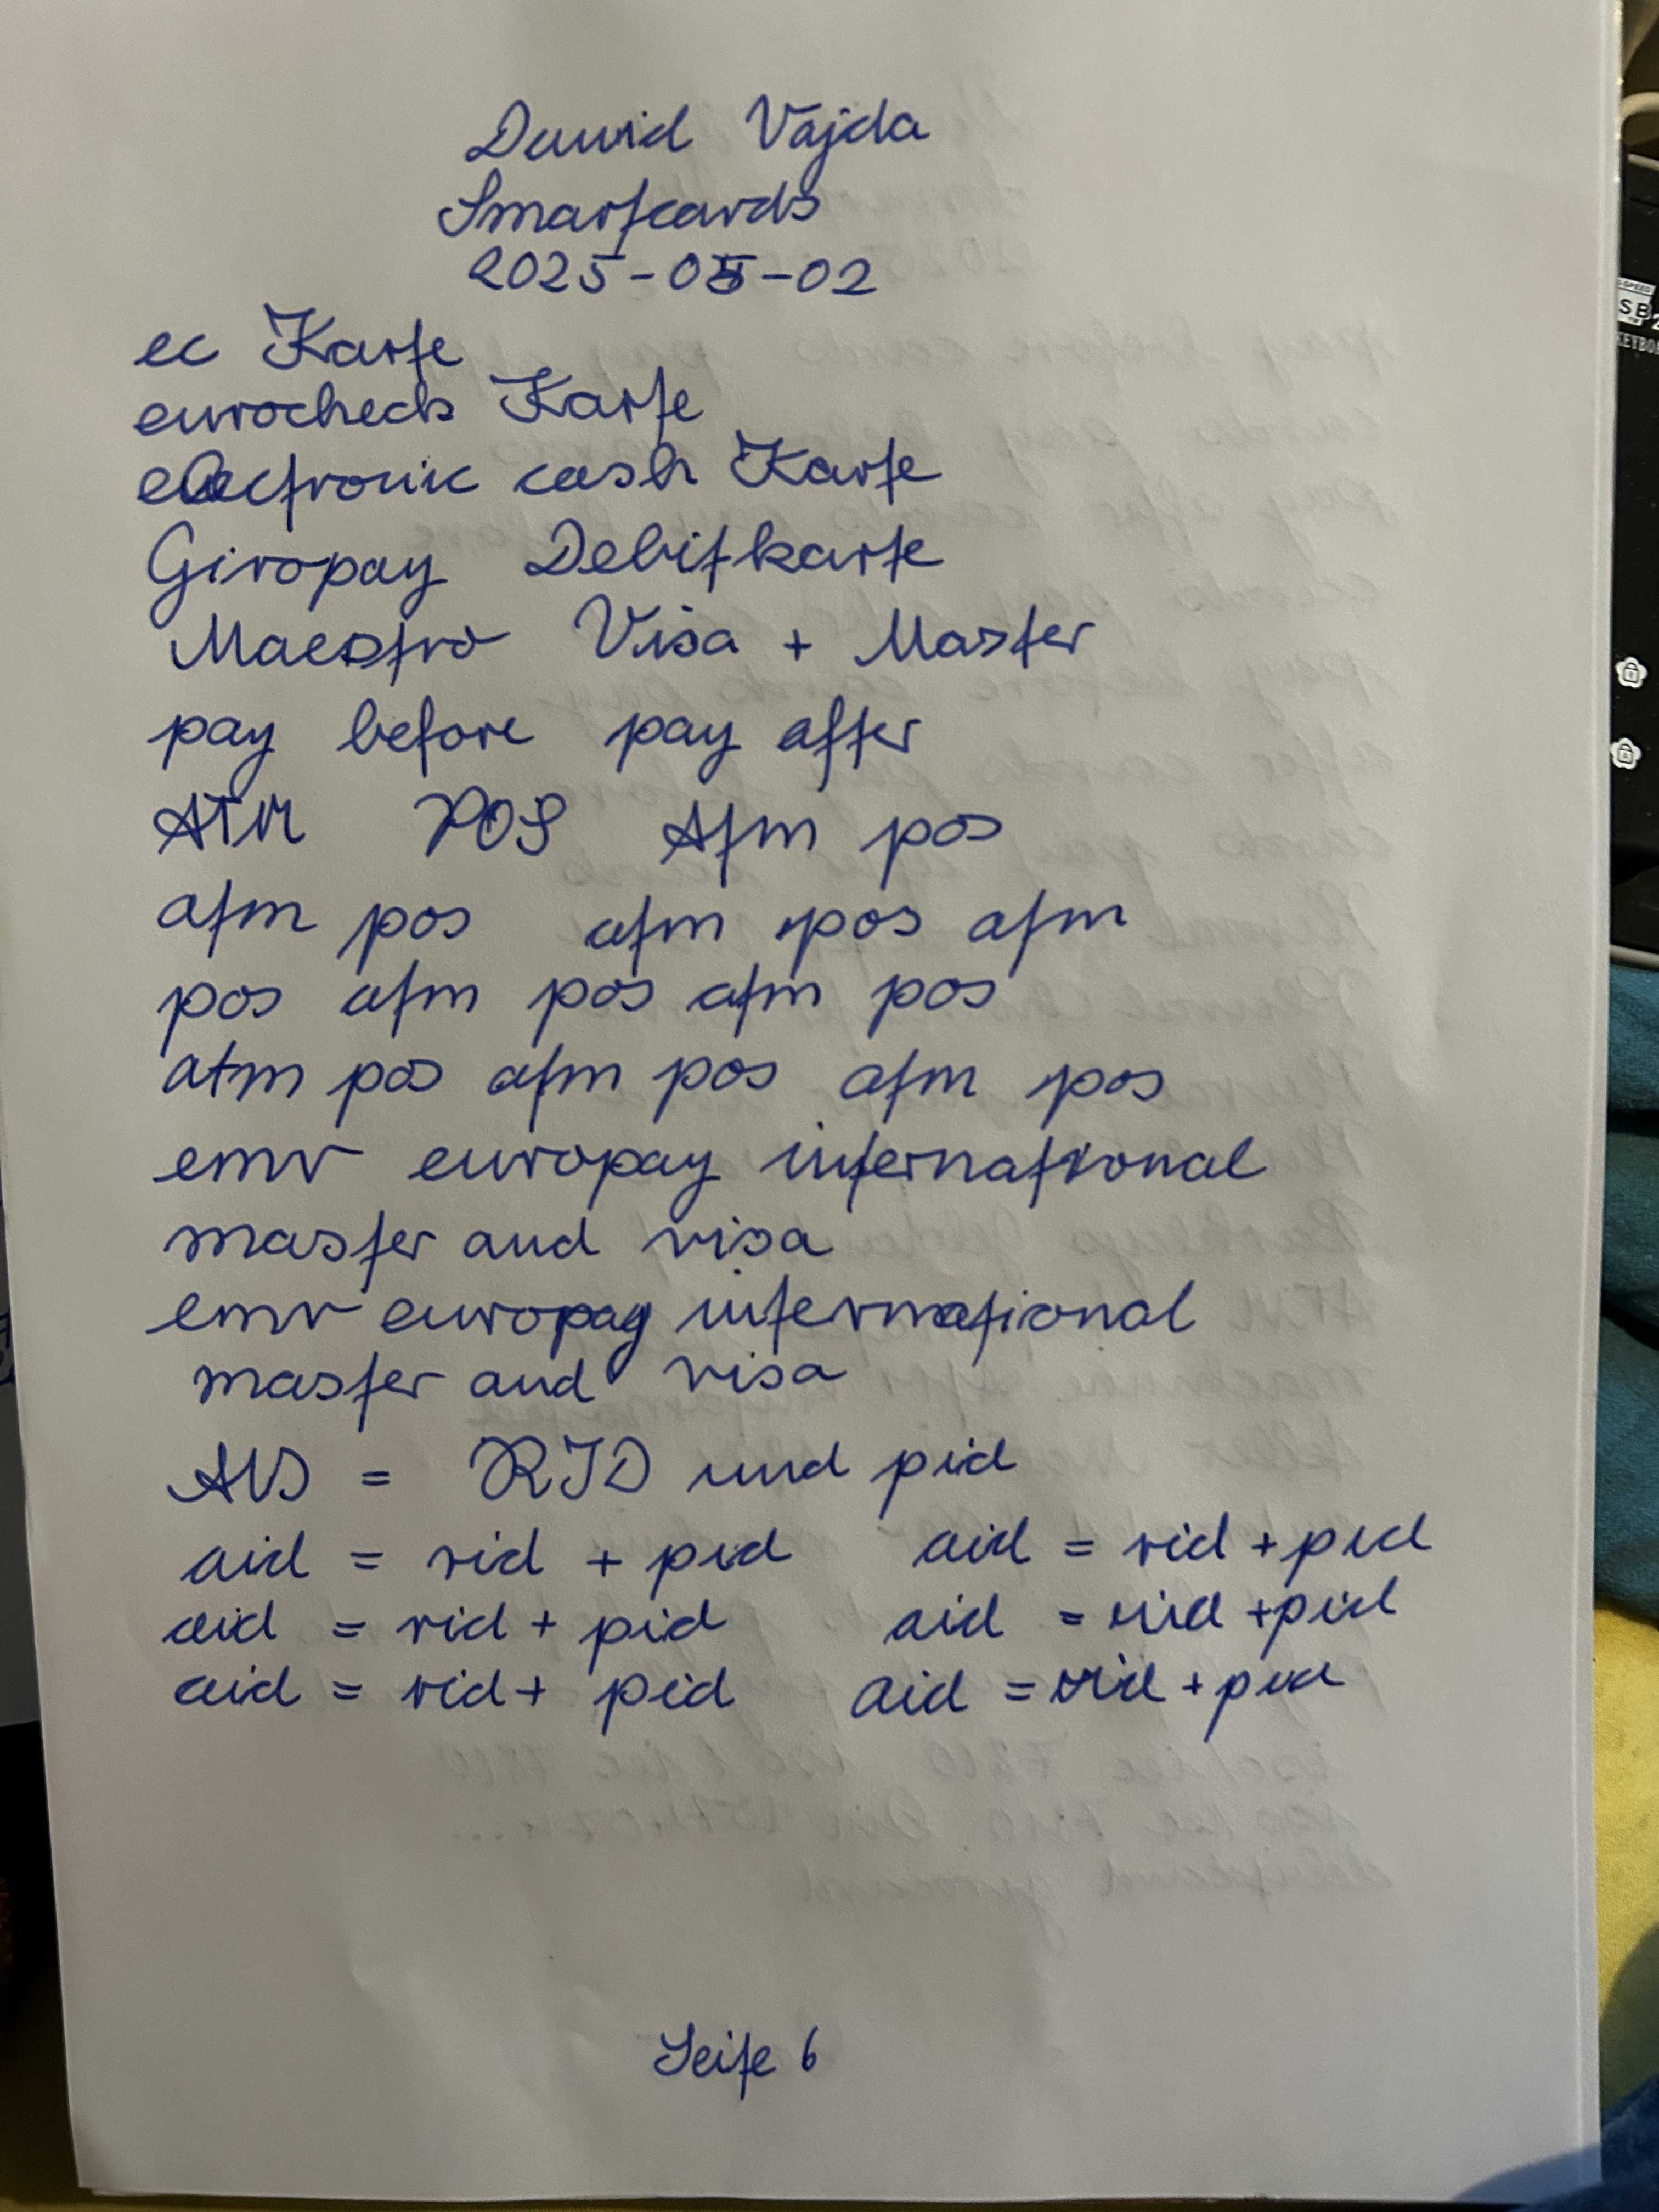 David Vajda
Smartcards
2025-05-02
ec Karte
eurocheck Karte
electronic cash Karte
Giropay Debitkarte
Maestro Visa + Master
pay before pay after
ATM POS Atm pos
atm pos atm pos atm
pos atm pos atm pos
atm pos atm pos atm pos
emv europay international
master and visa
emv europay international
master and visa
AID = RID und pid
aid = rid + pid aid = rid + pid
aid = rid + pid aid = rid + pid
aid = rid + pid aid = rid + pid
Seite 6